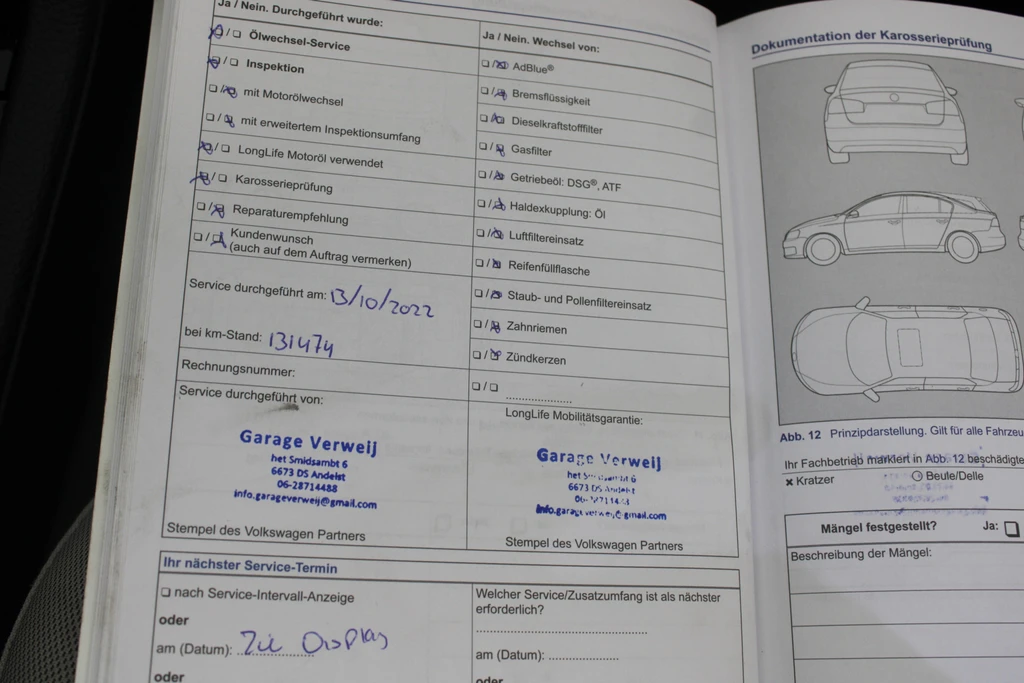 Ja / Nein. Durchgeführt wurde:
☒/☐ Ölwechsel-Service
☒/☐ Inspektion
☐/☒ mit Motorölwechsel
☐/☒ mit erweitertem Inspektionsumfang
☒/☐ LongLife Motoröl verwendet
☒/☐ Karosserieprüfung
☐/☒ Reparaturempfehlung
☐/☒ Kundenwunsch
(auch auf dem Auftrag vermerken)
Service durchgeführt am: 13/10/2022
bei km-Stand: 131474
Rechnungsnummer:
Service durchgeführt von:
Garage Verweij
het Smidsambt 6
6673 DS Andelst
06-28714488
info.garageverweij@gmail.com
Stempel des Volkswagen Partners
Ja / Nein. Wechsel von:
☐/☒ AdBlue®
☐/☒ Bremsflüssigkeit
☐/☒ Dieselkraftstofffilter
☐/☒ Gasfilter
☐/☒ Getriebeöl: DSG®, ATF
☐/☒ Haldexkupplung: Öl
☐/☒ Luftfiltereinsatz
☐/☒ Reifenfüllflasche
☐/☒ Staub- und Pollenfiltereinsatz
☐/☒ Zahnriemen
☐/☒ Zündkerzen
☐/☐ ......................
LongLife Mobilitätsgarantie:
Garage Verweij
6673 DS Andelst
info.garageverweij@gmail.com
Stempel des Volkswagen Partners
Ihr nächster Service-Termin
☐ nach Service-Intervall-Anzeige
oder
am (Datum): Zie Display
oder
Welcher Service/Zusatzumfang ist als nächster
erforderlich?
am (Datum): ....................
oder
Dokumentation der Karosserieprüfung
Abb. 12 Prinzipdarstellung. Gilt für alle
Ihr Fachbetrieb markiert in Abb. 12
× Kratzer
Beule/Delle
Mängel festgestellt? Ja: ☐
Beschreibung der Mängel: